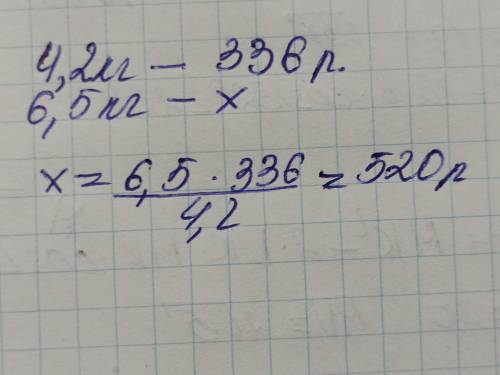 4,2кг — 336р.
6,5кг — х
х = 6,5 · 336 / 4,2 = 520р